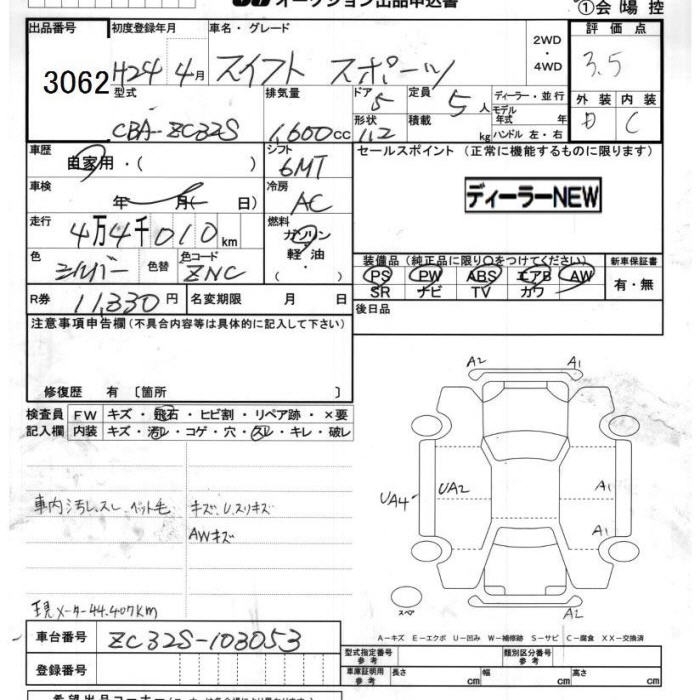 オークション出品申込書
①会場控
出品番号 初度登録年月 車名・グレード 2WD・4WD 評価点
3062 H24 4月 スイフト スポーツ 3.5
型式 排気量 ドア 定員 ディーラー・並行 外装 内装
CBA-ZC32S 1,600cc 5 5人 モデル年式 年 D C
形状 積載 kg ハンドル 左・右
112
車歴 自家用・( ) シフト 6MT セールスポイント (正常に機能するものに限ります)
車検 年 月( 日) 冷房 AC ディーラーNEW
走行 4万4千010km 燃料 ガソリン・軽油・( )
色 シルバー 色替 色コード ZNC
装備品(純正品に限り○をつけてください) 新車保証書
PS PW ABS エアB AW 有・無
SR ナビ TV カワ
R券 11,330円 名変期限 月 日 後日品
注意事項申告欄(不具合内容等は具体的に記入して下さい)
修復歴 有 〔箇所 〕
検査員 FW キズ・飛石・ヒビ割・リペア跡・×要
記入欄 内装 キズ・汚レ・コゲ・穴・スレ・キレ・破レ
車内汚レ、スレ ペット毛 キズ、U.スリキズ
AWキズ
現メーター44.407km
A2 A1
UA4 UA2 A1
A1
スペ A2
A―キズ E―エクボ U―凹み W―補修跡 S―サビ C―腐食 XX―交換済
車台番号 ZC32S-103053
登録番号
型式指定番号 参考 類別区分番号 参考
車庫証明用 参考 長さ cm 幅 cm 高さ cm